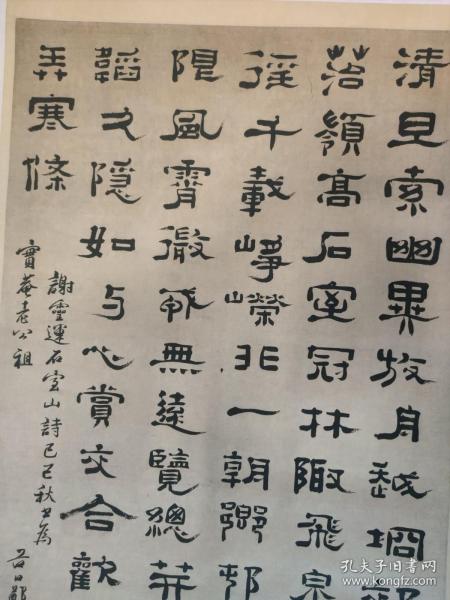 清旦索幽異放舟越坰郊
苺嶺高石室冠林陬飛泉
徑千載崢嶸非一朝鄉邨
阻風霄徹我無遠覽總笄
韜久隱如与心賞交合歡
弄寒條
謝靈運石室山詩己巳秋日為
寶菴老公祖
孔夫子旧书网